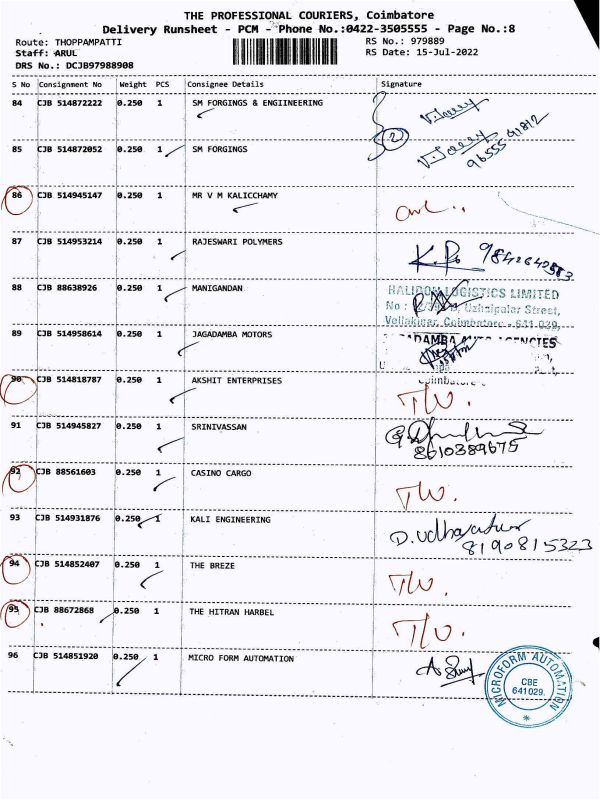 THE PROFESSIONAL COURIERS, Coimbatore
Delivery Runsheet - PCM - Phone No.:0422-3505555 - Page No.:8
Route: THOPPAMPATTI RS No.: 979889
Staff: ARUL RS Date: 15-Jul-2022
DRS No.: DCJB97988908
S No Consignment No Weight PCS Consignee Details Signature
84 CJB 514872222 0.250 1 SM FORGINGS & ENGIINEERING
2
85 CJB 514872052 0.250 1 SM FORGINGS
96555 91812
86 CJB 514945147 0.250 1 MR V M KALICCHAMY
87 CJB 514953214 0.250 1 RAJESWARI POLYMERS
9842642583
88 CJB 88638926 1 0.250 1 MANIGANDAN
LOGISTICS LIMITED
Street,
Coimbatore - 641 029.
89 CJB 514958614 0.250 1 JAGADAMBA MOTORS
90 CJB 514818787 0.250 1 AKSHIT ENTERPRISES
91 CJB 514945827 0.250 1 SRINIVASSAN
8610389675
92 CJB 88561603 0.250 1 CASINO CARGO
93 CJB 514931876 0.250 1 KALI ENGINEERING
8190815323
94 CJB 514852407 0.250 1 THE BREZE
95 CJB 88672868 0.250 1 THE HITRAN HARBEL
96 CJB 514851920 0.250 1 MICRO FORM AUTOMATION
MICROFORM AUTOMATION
CBE
641029.